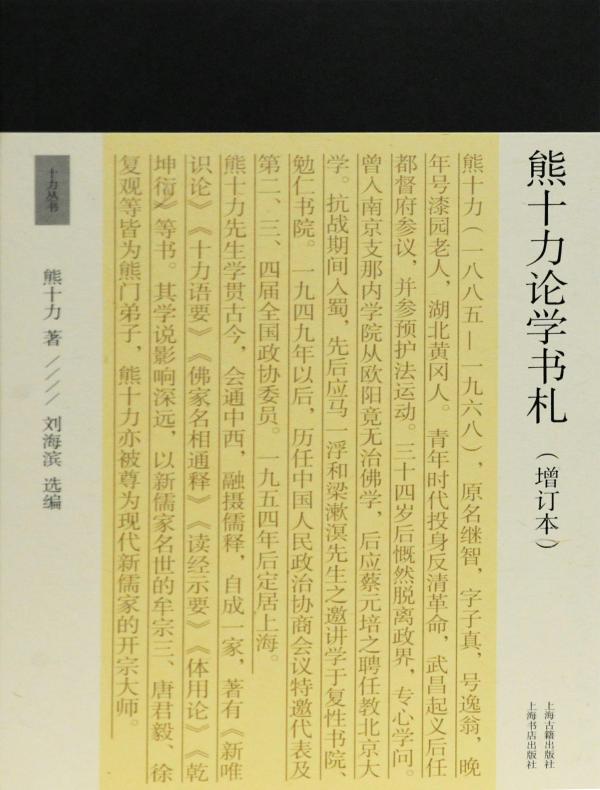 熊十力论学书札
（增订本）
上海古籍出版社
上海书店出版社
熊十力（一八八五—一九六八），原名继智，字子真，号逸翁，晚
年号漆园老人，湖北黄冈人。青年时代投身反清革命，武昌起义后任
都督府参议，并参预护法运动。三十四岁后慨然脱离政界，专心学问。
曾入南京支那内学院从欧阳竟无治佛学，后应蔡元培之聘任教北京大
学。抗战期间入蜀，先后应马一浮和梁漱溟先生之邀讲学于复性书院、
勉仁书院。一九四九年以后，历任中国人民政治协商会议特邀代表及
第二、三、四届全国政协委员。一九五四年后定居上海。
熊十力先生学贯古今，会通中西，融摄儒释，自成一家，著有《新唯
识论》《十力语要》《佛家名相通释》《读经示要》《体用论》《乾
坤衍》等书。其学说影响深远，以新儒家名世的牟宗三、唐君毅、徐
复观等皆为熊门弟子，熊十力亦被尊为现代新儒家的开宗大师。
十力丛书
熊十力 著 //// 刘海滨 选编